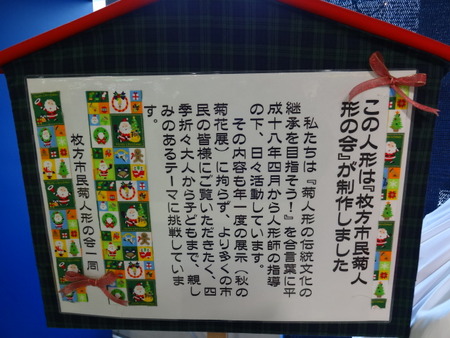 この人形は『枚方市民菊人
形の会』が制作しました
私たちは『菊人形の伝統文化の
継承を目指そう!』を合言葉に平
成十八年四月から人形師の指導
の下、日々活動しています。
その内容も年一度の展示(秋の
菊花展)に拘らず、より多くの市
民の皆様にご覧いただきたく、四
季折々大人から子どもまで、親し
みのあるテーマに挑戦していま
す。
枚方市民菊人形の会一同